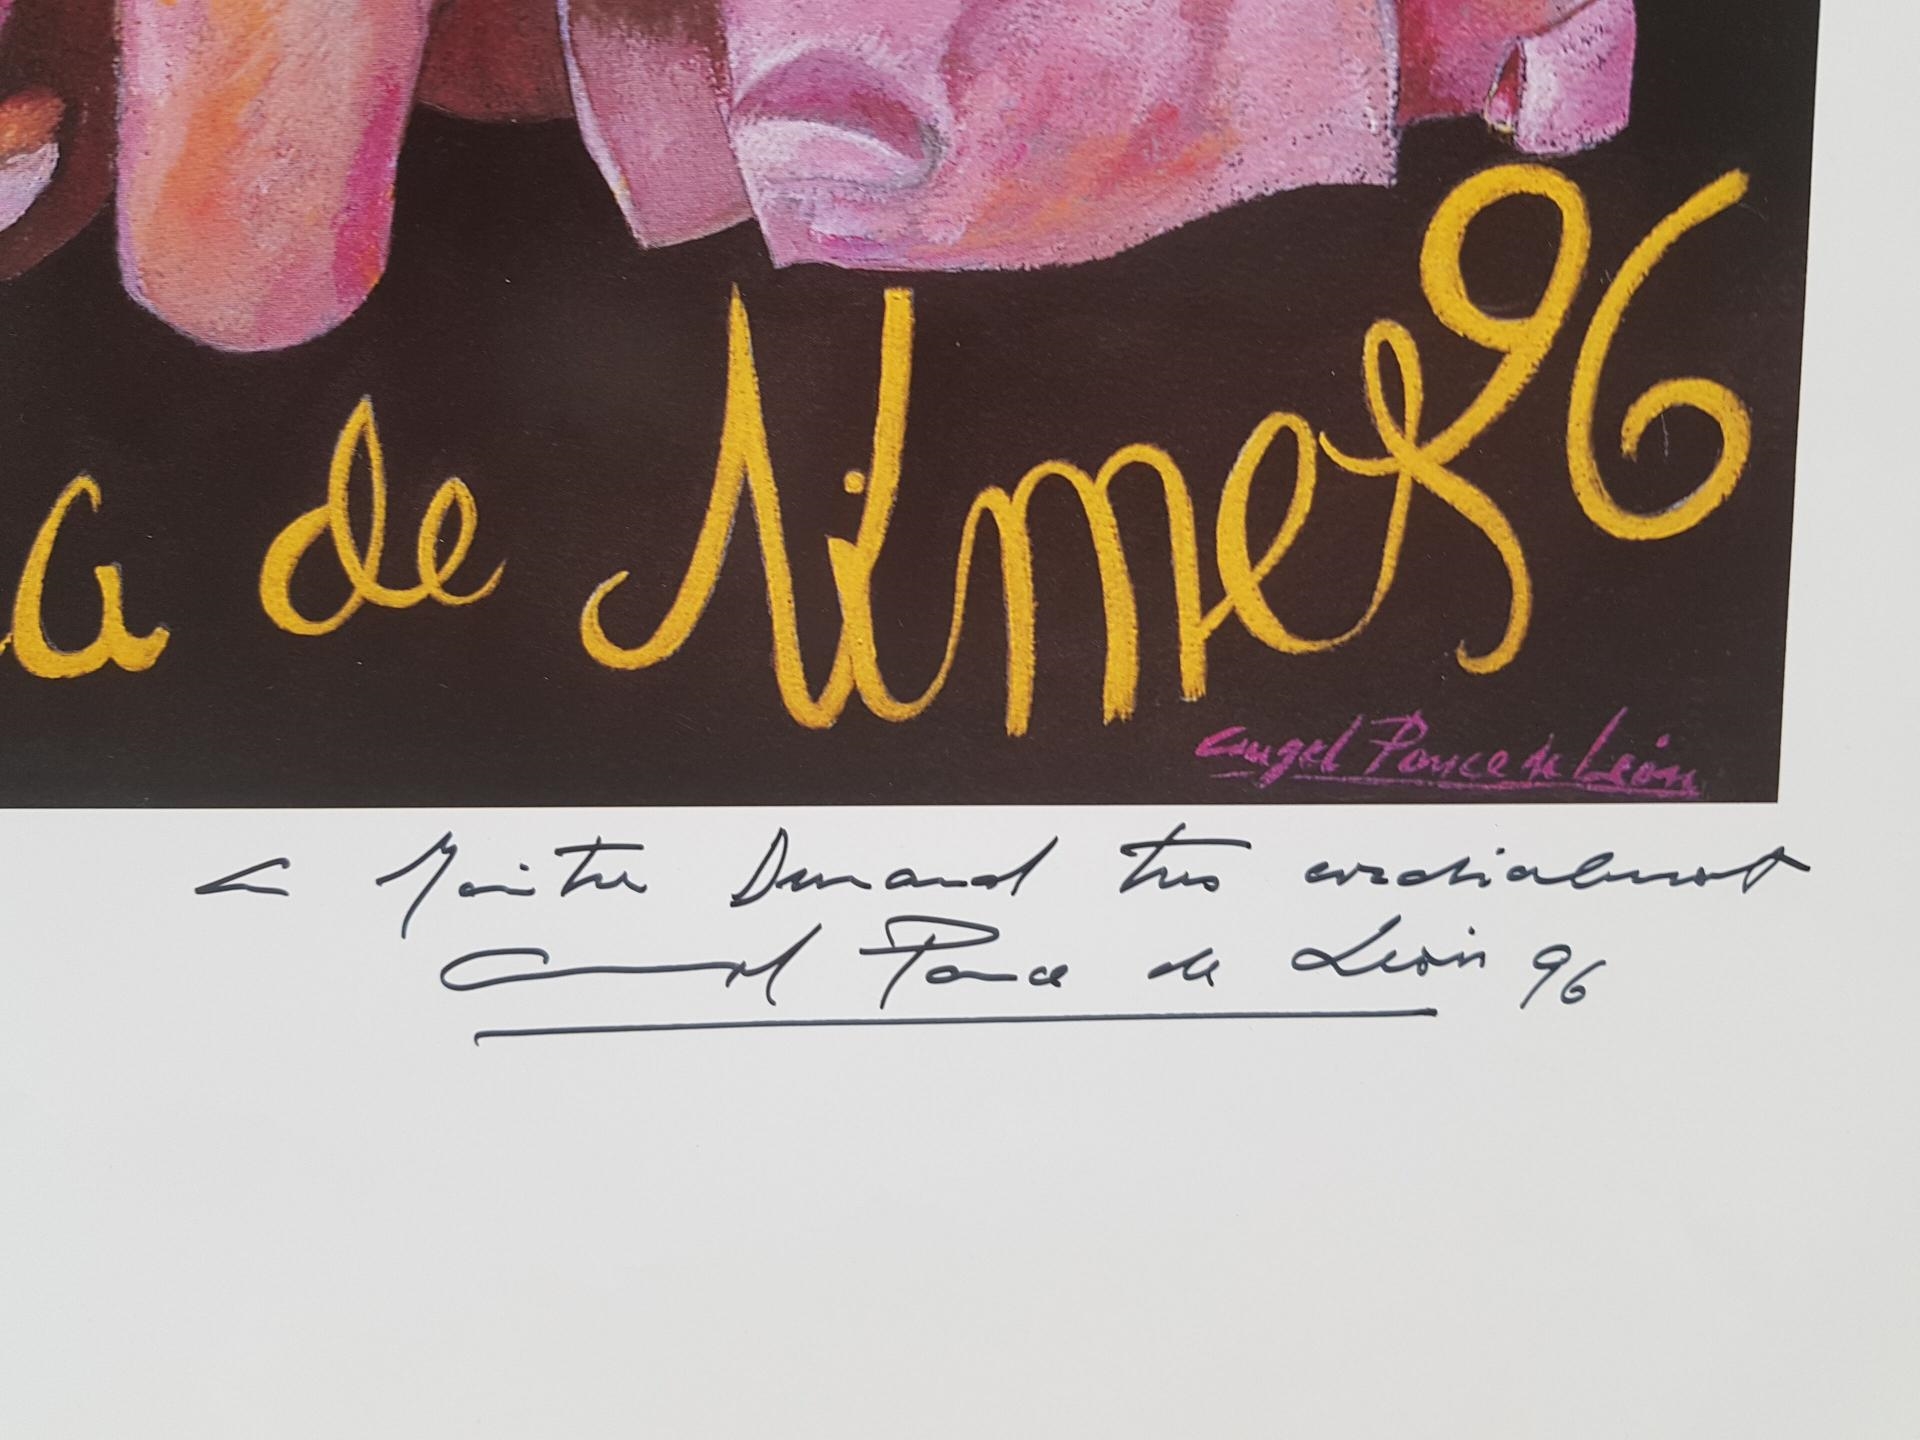 a de Nimes 96
Angel Ponce de León
a Maitre Durand tres cordialement
Angel Ponce de León 96